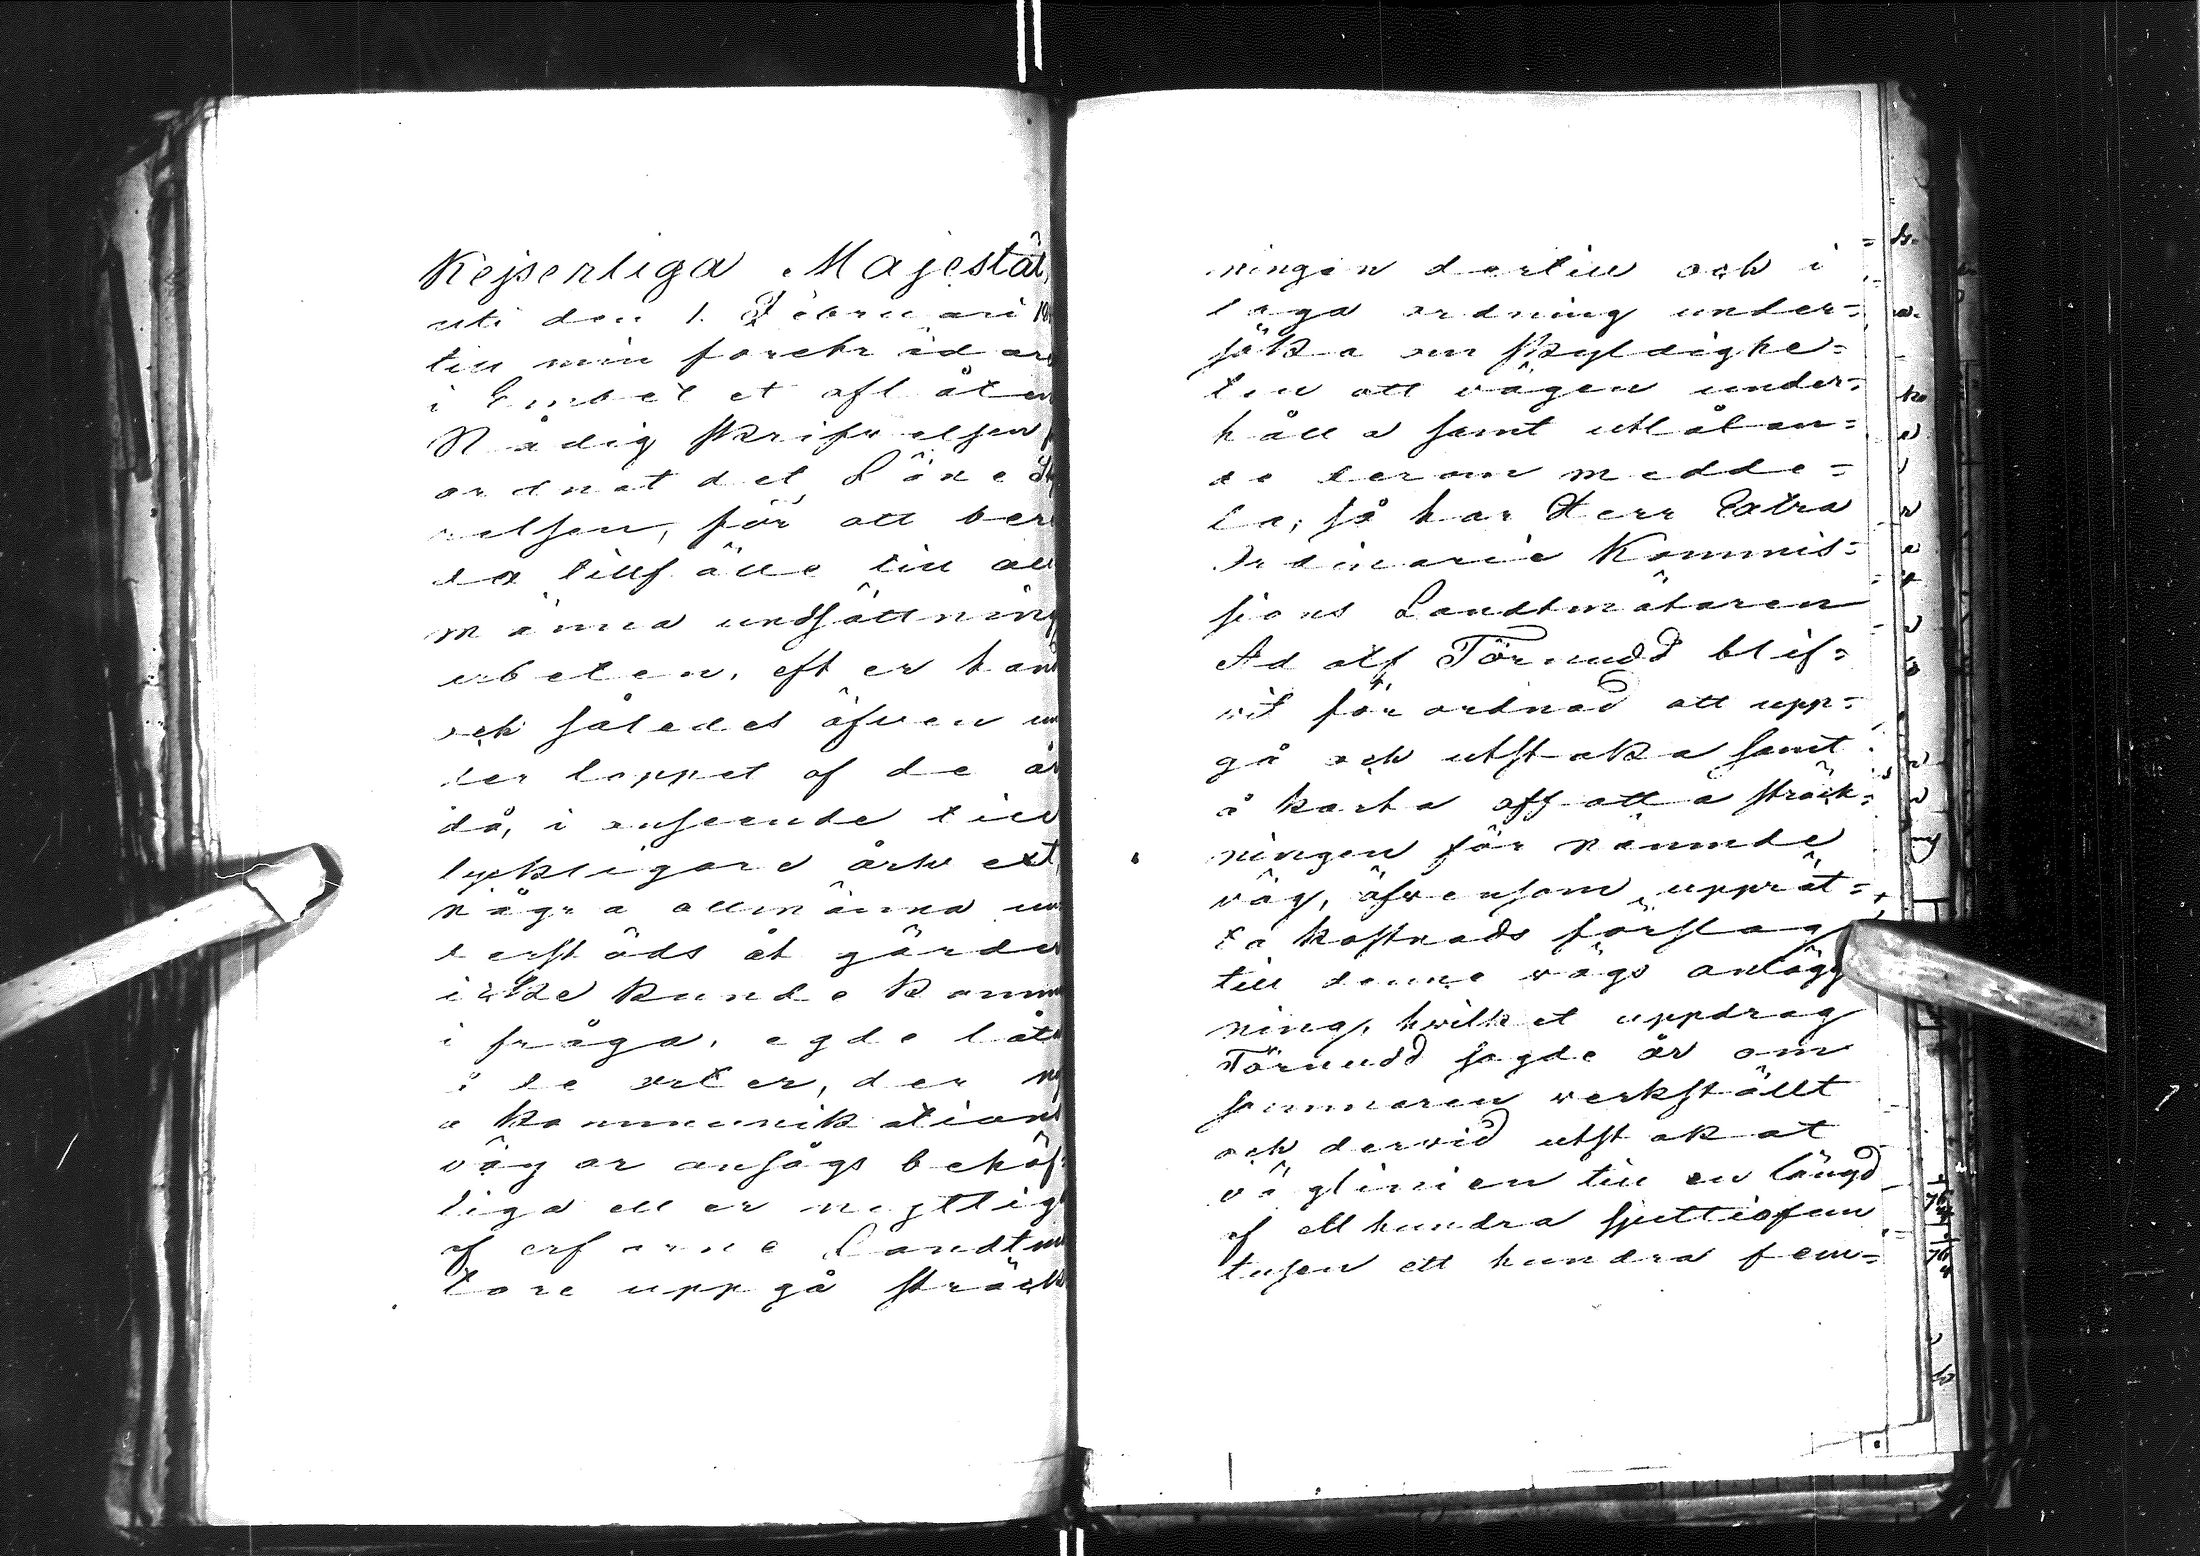 Kejserliga Majestät,
uti den 1. Februari 18
till min företrädare
i Embetet aflåten
Nådig skrifvelse
ordnat det Läne Sty
relsen, för att bere
da tillfälle till all
männa undsättning
arbeten, efter hand
och således äfven un
der loppet af de år
då, i anseende till
lyckligare årsvext,
några allmänna un
derstöds åtgärder
icke kunde komma
i fråga, egde låta
i de orter, der ny
a kommunikations
vägar ansågs behöf
liga eller nyttiga
af erfarne Landtmä
tare uppgå sträck
ningen dertill och i
laga ordning under=
söka om skyldighe=
ten att vägen under=
hålla samt utlåtan=
de derom medde=
la; så har Herr Extra
Ordinarie Kommis=
sions Landtmätaren
Adolf Törnudd blif=
vit förordnad att upp=
gå och utstaka samt
å karta affatta sträck=
ningen för nämnde
väg, äfvensom upprät=
ta kostnads förslag
till denne vägs anlägg
ning, hvilket uppdrag
Törnudd sagde år om
sommaren verkställt
och dervid utstakat
väglinien till en längd
af ett hundra sjuttiofem
tusen ett hundra fem=